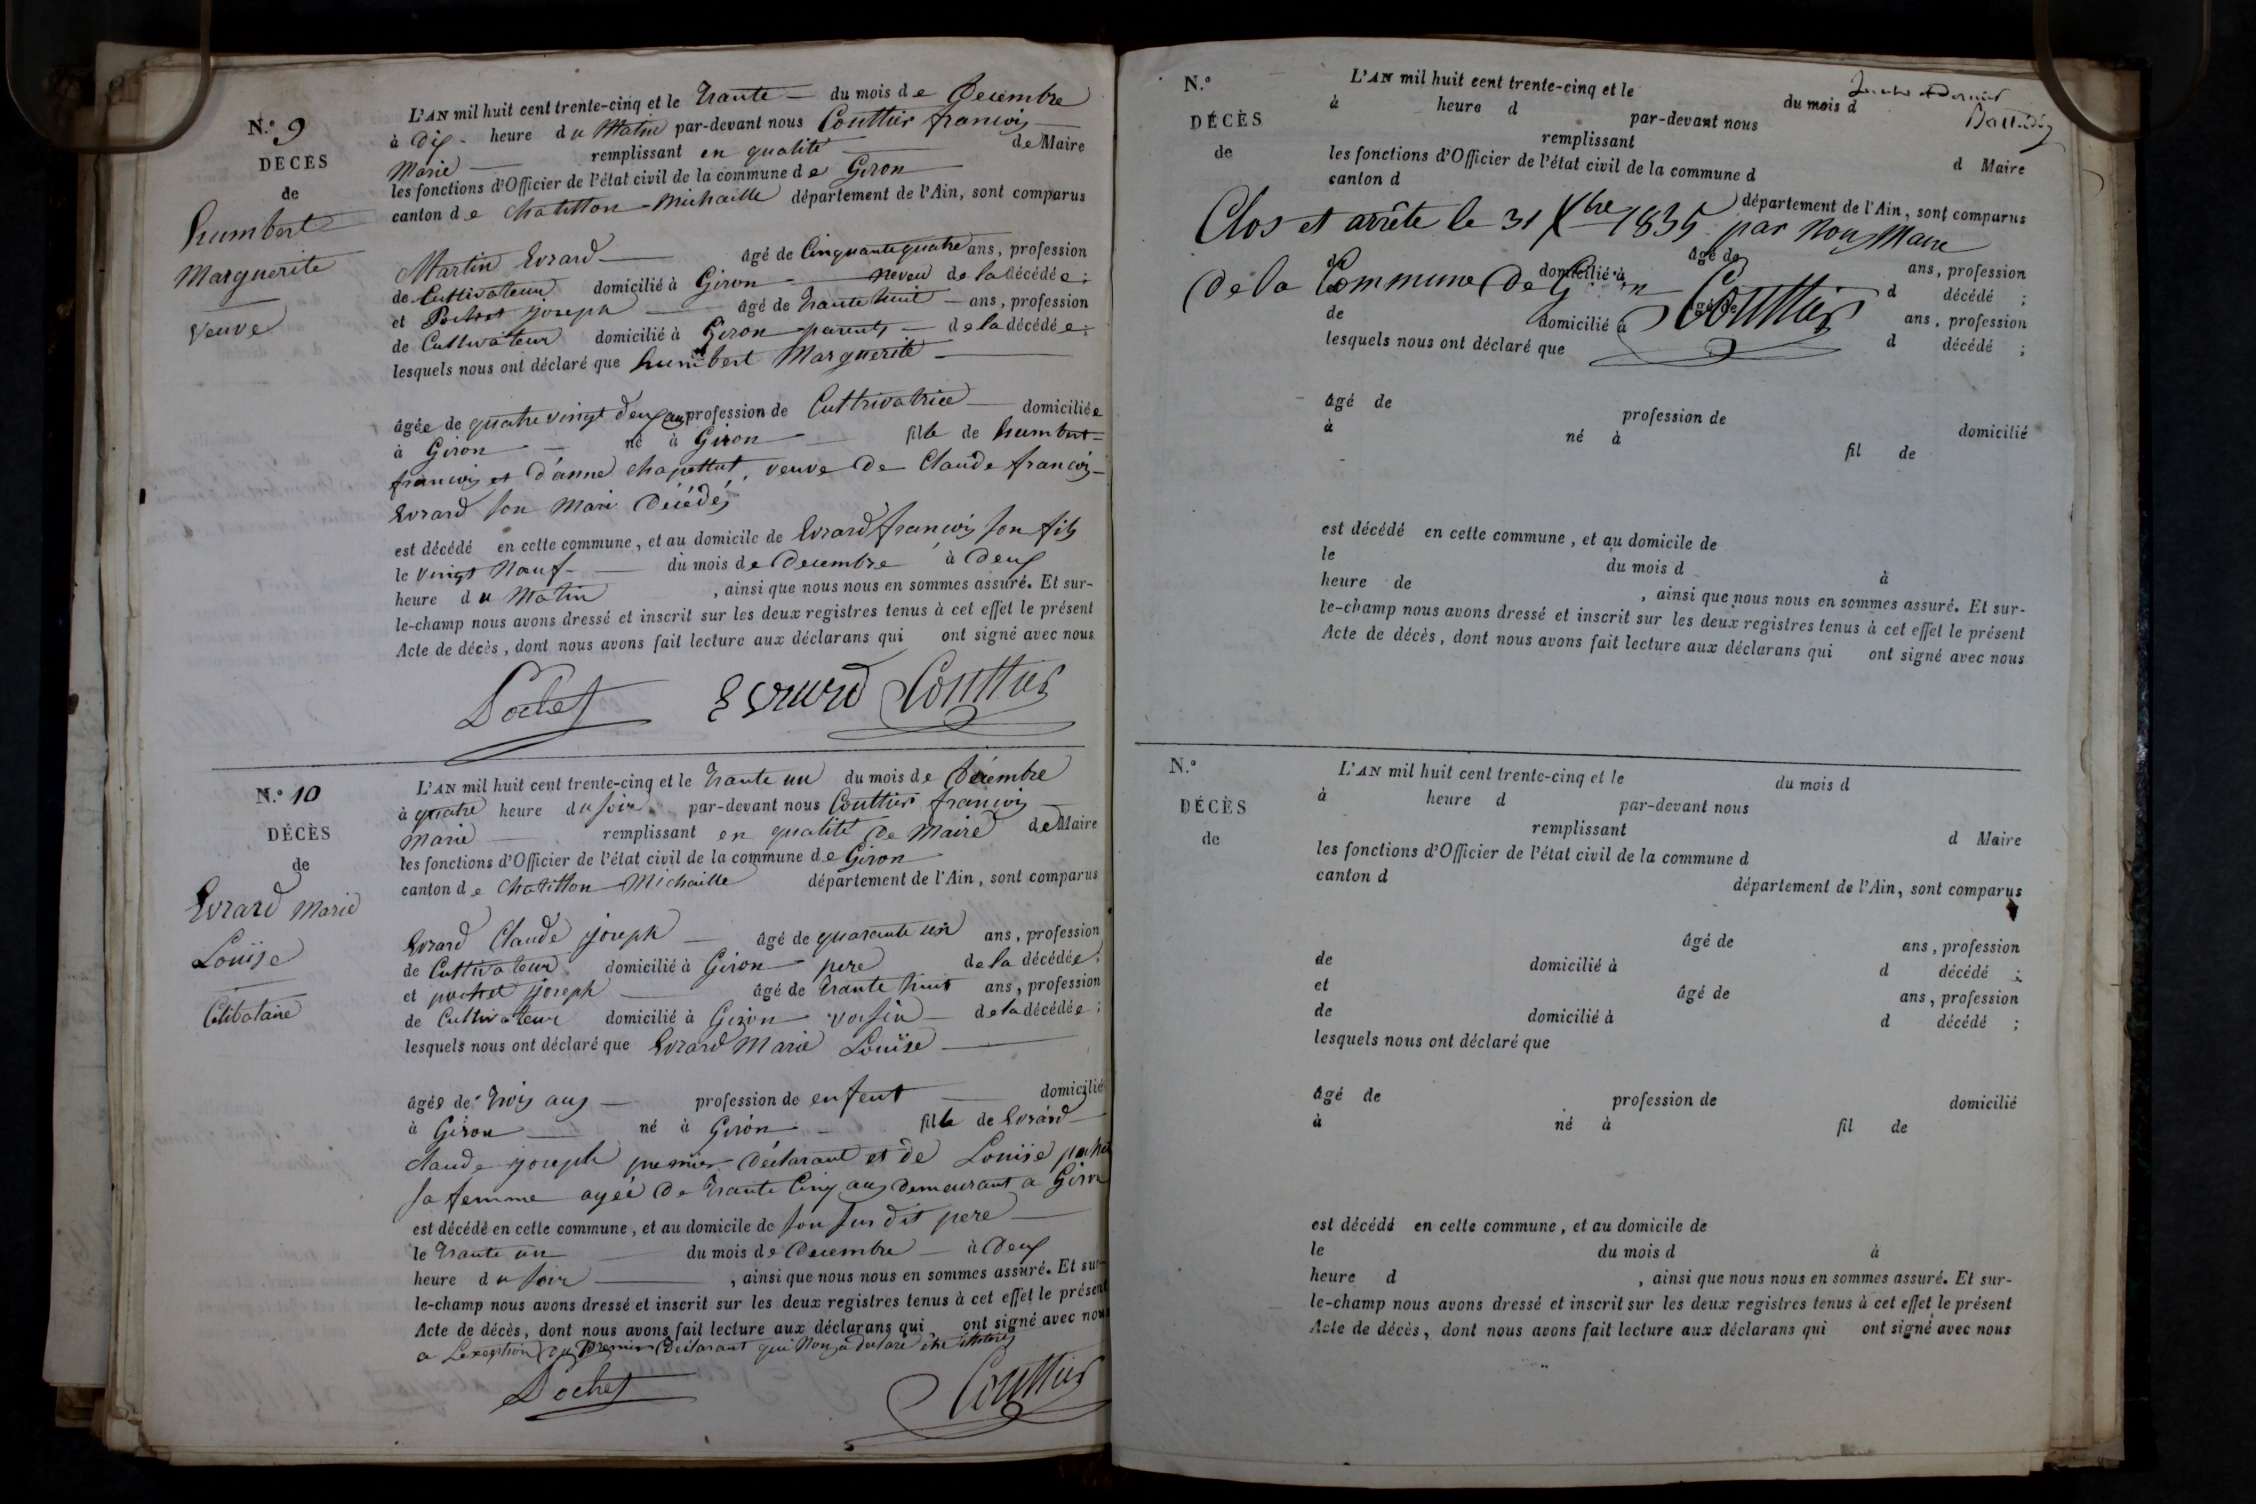 N.º 9
DÉCÈS
de
humbert
Marguerite
veuve
L'AN mil huit cent trente-cinq et le trante du mois de decembre
à dix heure du Matin par-devant nous Couttier francois
Marie remplissant en qualité de Maire
les fonctions d'Officier de l'état civil de la commune de Giron
canton de chatillon Michaille département de l'Ain, sont comparus
Martin Evrard âgé de Cinquante quatre ans, profession
de Cultivateur domicilié à Giron neveu de la décédée ;
et Pochet joseph âgé de trante huit ans, profession
de Cultivateur domicilié à Giron parents de la décédée ;
lesquels nous ont déclaré que humbert Marguerite
âgée de quatre vingt deux ans profession de Cultivatrice domiciliée
à Giron né à Giron fille de humbert
francois et d'anne chapettut, veuve de Claude francois
Evrard son Mari décédés
est décédé en cette commune, et au domicile de Evrard francois son fils
le vingt Nauf du mois de Decembre à deux
heure du Matin , ainsi que nous nous en sommes assuré. Et sur-
le-champ nous avons dressé et inscrit sur les deux registres tenus à cet effet le présent
Acte de décès, dont nous avons fait lecture aux déclarans qui ont signé avec nous
Pochet Evrard Couttier
N.º 10
DÉCÈS
de
Evrard Marie
Louise
Celibataire
L'AN mil huit cent trente-cinq et le trante un du mois de decembre
à quatre heure du soir par-devant nous Couttier francois
Marie remplissant en qualité de Maire de Maire
les fonctions d'Officier de l'état civil de la commune de Giron
canton de chatillon Michaille département de l'Ain, sont comparus
Evrard Claude joseph âgé de quarante un ans, profession
de Cultivateur domicilié à Giron pere de la décédée ;
et pochet joseph âgé de trante huit ans, profession
de Cultivateur domicilié à Giron voisin de la décédée ;
lesquels nous ont déclaré que Evrard Marie Louise
âgée de trois ans profession de enfent domicilié
à Giron né à Giron fille de Evrard
claude joseph premier déclarant et de Louise pochet
sa femme agée de trante Cinq ans demeurant a Giron
est décédé en cette commune, et au domicile de son sus dit pere
le trante un du mois de Decembre à deux
heure du soir , ainsi que nous nous en sommes assuré. Et sur-
le-champ nous avons dressé et inscrit sur les deux registres tenus à cet effet le présent
Acte de décès, dont nous avons fait lecture aux déclarans qui ont signé avec nous
a Lexeption du Premier déclarant qui Nous a declaré être
Pochet Couttier
N.º
DÉCÈS
de
L'AN mil huit cent trente-cinq et le du mois d
à heure d par-devant nous
remplissant d Maire
les fonctions d'Officier de l'état civil de la commune d
canton d département de l'Ain, sont comparus
Clos et arrête le 31 Xbre 1835 par Nous Maire
âgé de ans, profession
de domicilié à d décédé ;
De la Commune De Giron Couttier
et âgé de ans, profession
de domicilié à d décédé ;
lesquels nous ont déclaré que
âgé de profession de domicilié
à né à fil de
est décédé en cette commune, et au domicile de
le du mois d à
heure de , ainsi que nous nous en sommes assuré. Et sur-
le-champ nous avons dressé et inscrit sur les deux registres tenus à cet effet le présent
Acte de décès, dont nous avons fait lecture aux déclarans qui ont signé avec nous
N.º
DÉCÈS
de
L'AN mil huit cent trente-cinq et le du mois d
à heure d par-devant nous
remplissant d Maire
les fonctions d'Officier de l'état civil de la commune d
canton d département de l'Ain, sont comparus
âgé de ans, profession
de domicilié à d décédé ;
et âgé de ans, profession
de domicilié à d décédé ;
lesquels nous ont déclaré que
âgé de profession de domicilié
à né à fil de
est décédé en cette commune, et au domicile de
le du mois d à
heure d , ainsi que nous nous en sommes assuré. Et sur-
le-champ nous avons dressé et inscrit sur les deux registres tenus à cet effet le présent
Acte de décès, dont nous avons fait lecture aux déclarans qui ont signé avec nous